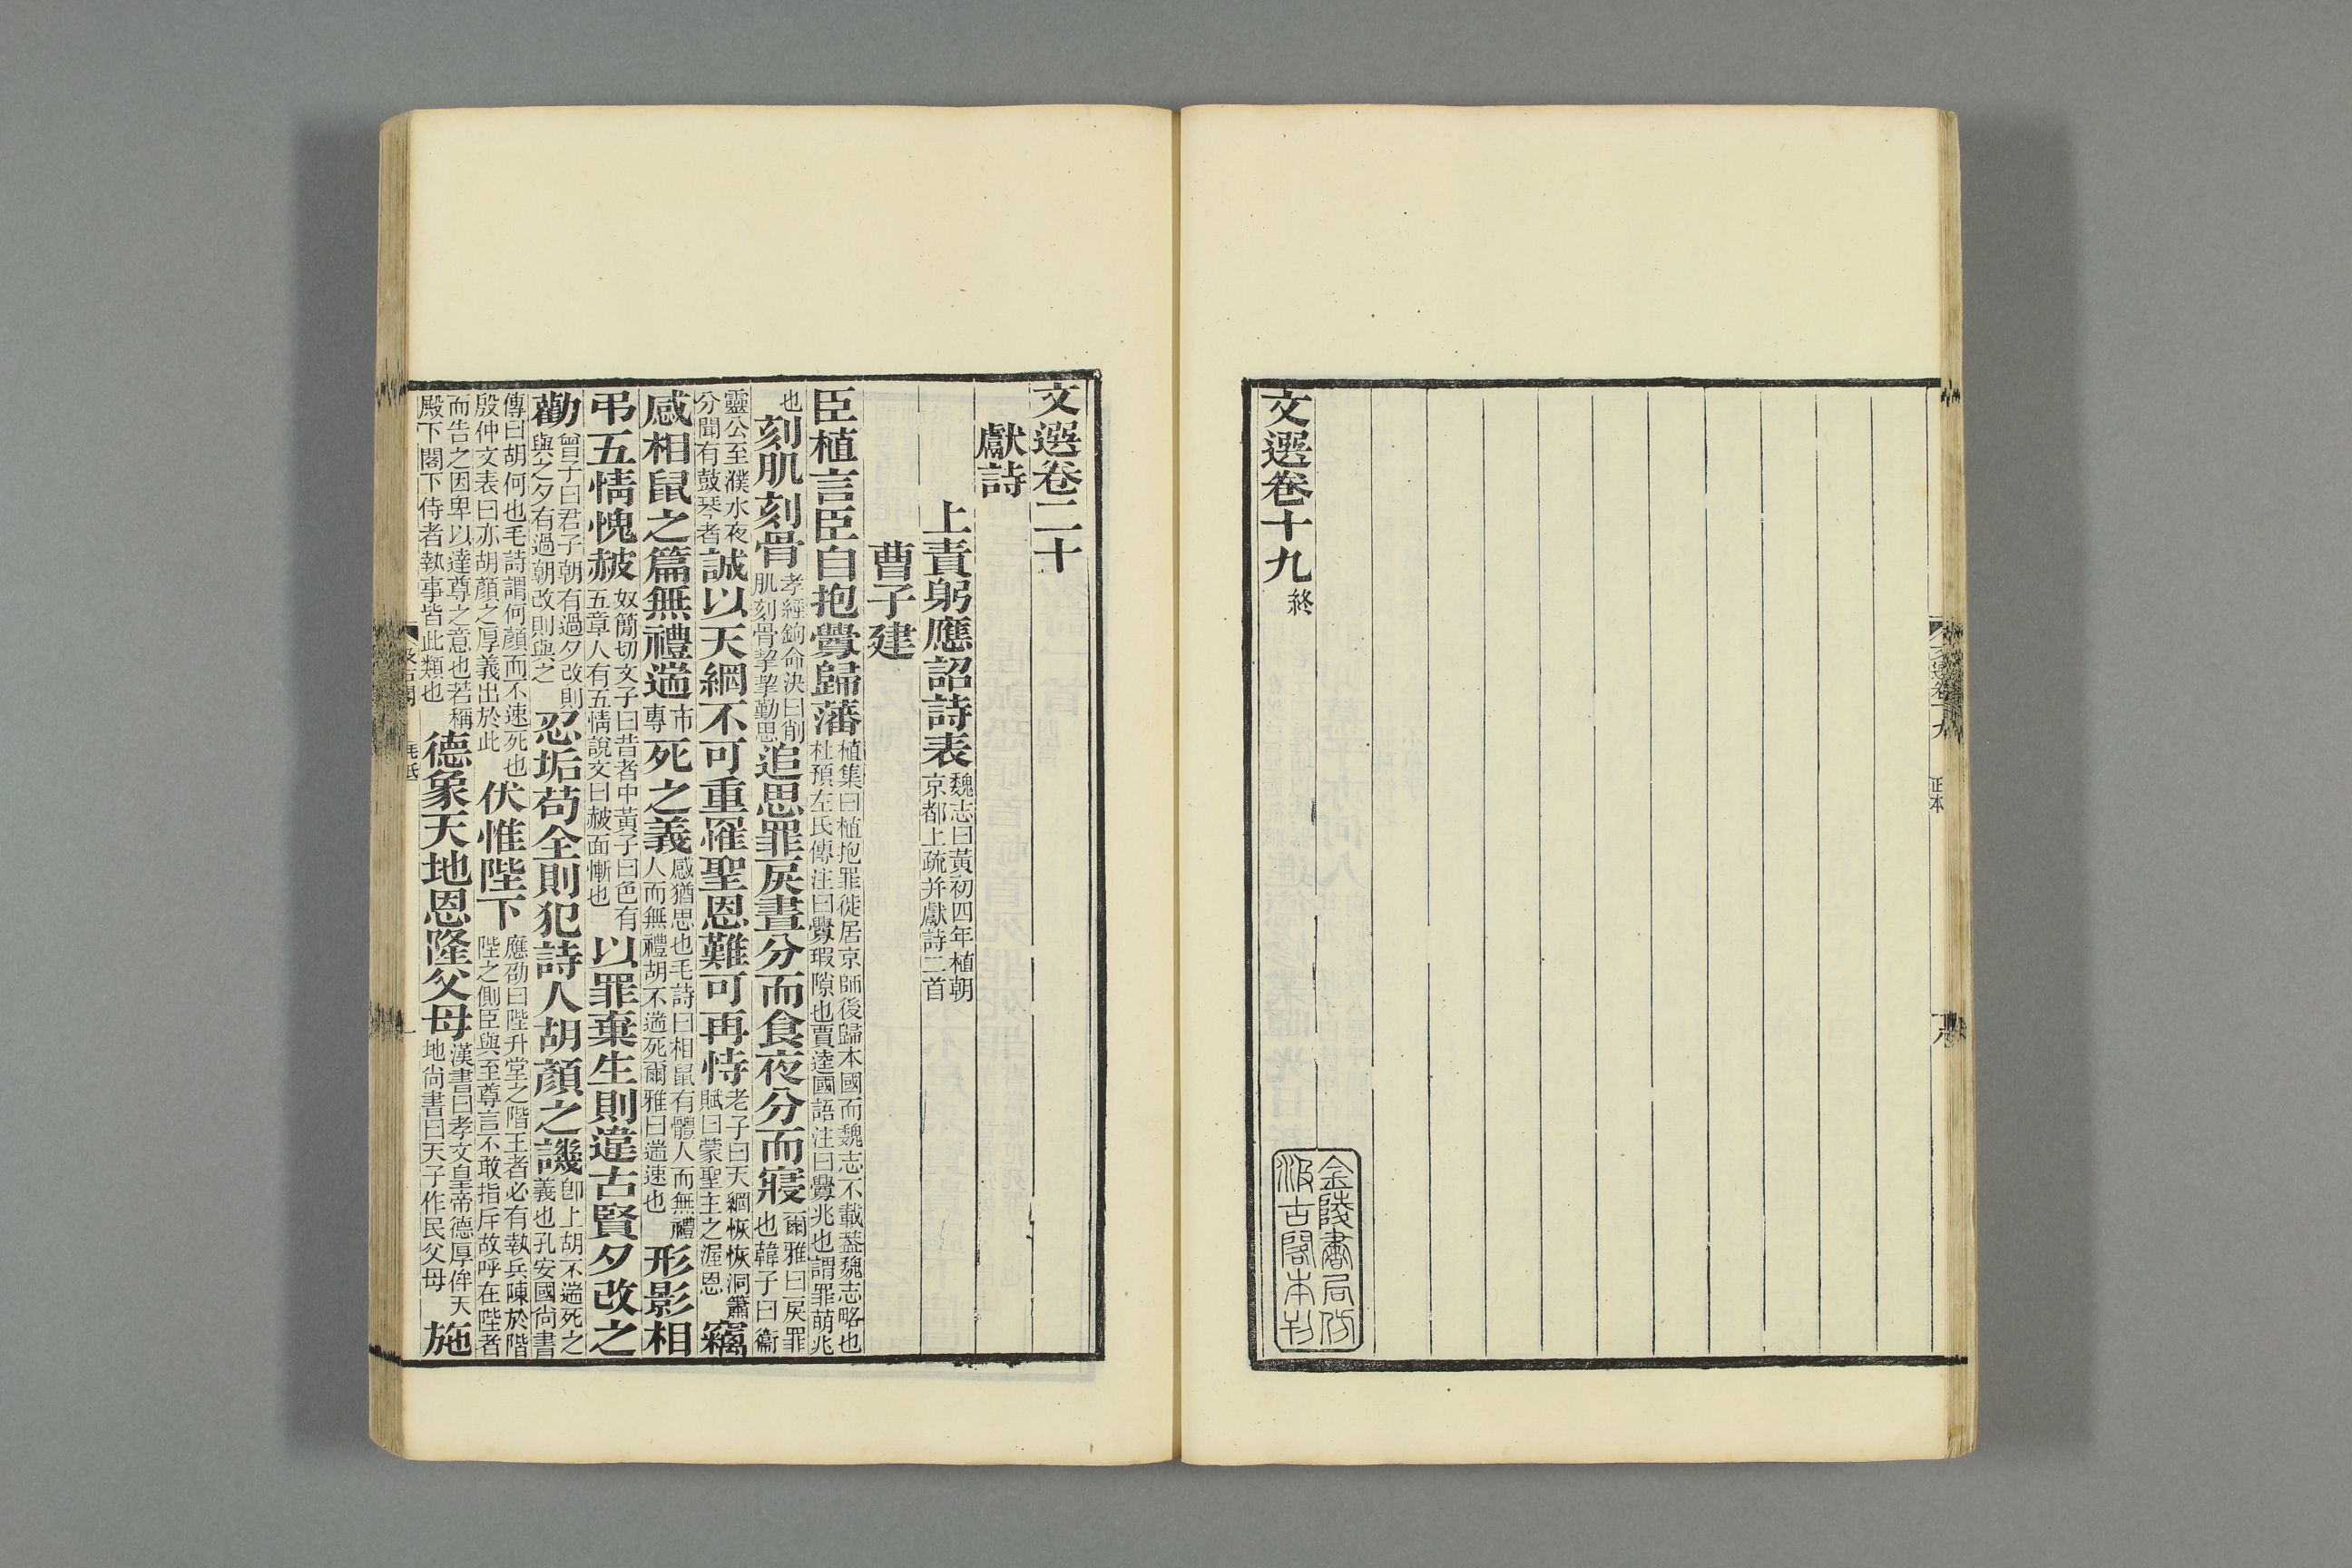 文選卷十九終
金陵書局仿
汲古閣本刊
文選卷二十
獻詩
上責躬應詔詩表魏志曰黃初四年植朝京都上疏并獻詩二首
曹子建
臣植言臣自抱釁歸藩植集曰植抱罪徙居京師後歸本國而魏志不載葢魏志略也杜預左氏傳注曰釁瑕隙也賈逵國語注曰釁兆也謂罪萌兆
也刻肌刻骨孝經鉤命決曰削肌刻骨挈挈勤思追思罪戾晝分而食夜分而寢爾雅曰戾罪也韓子曰衞
靈公至濮水夜分聞有鼓琴者誠以天網不可重罹聖恩難可再恃老子曰天網恢恢洞簫賦曰蒙聖主之渥恩竊
感相鼠之篇無禮遄市專死之義感猶思也毛詩曰相鼠有體人而無禮人而無禮胡不遄死爾雅曰遄速也形影相
弔五情愧赧奴簡切文子曰昔者中黃子曰色有五章人有五情說文曰赧面慚也以罪棄生則違古賢夕改之
勸曾子曰君子朝有過夕改則與之夕有過朝改則與之忍垢苟全則犯詩人胡顏之譏卽上胡不遄死之義也孔安國尚書
傳曰胡何也毛詩謂何顏而不速死也殷仲文表曰亦胡顏之厚義出於此伏惟陛下應劭曰陛升堂之階王者必有執兵陳於階陛之側臣與至尊言不敢指斥故呼在陛者
而告之因卑以達尊之意也若稱殿下閣下侍者執事皆此類也德象天地恩隆父母漢書曰孝文皇帝德厚侔天地尚書曰天子作民父母施